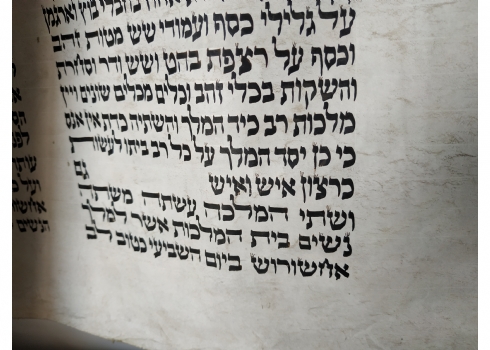 בחבלי בוץ וארגמן
על גלילי כסף ועמודי שש מטות זהב
וכסף על רצפת בהט ושש ודר וסחרת
והשקות בכלי זהב וכלים מכלים שונים ויין
מלכות רב כיד המלך והשתיה כדת אין אנס
כי כן יסד המלך על כל רב ביתו לעשות
כרצון איש ואיש גם
ושתי המלכה עשתה משתה
נשים בית המלכות אשר למלך
אחשורוש ביום השביעי כטוב לב